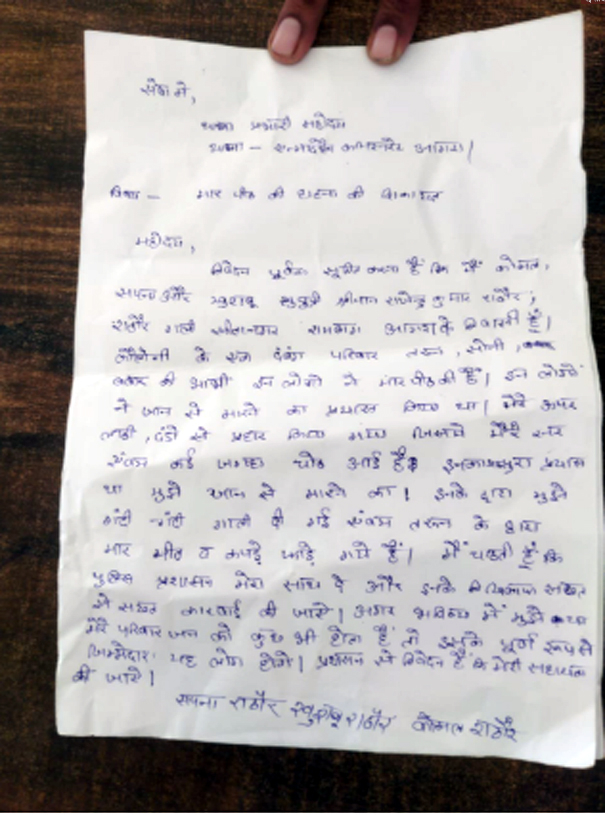 सेवा में,
थाना प्रभारी महोदय
थाना - कमिश्नरेट आगरा।
विषय - मार पीट की घटना की शिकायत
महोदय,
निवेदन पूर्वक सूचित करना है कि मैं कोमल,
सपना और खुशबू सुपुत्री श्रीमान राजेन्द्र कुमार राठौर,
राठौर गली सीतानगर रामबाग आगरा के निवासी हैं।
के एक दबंग परिवार तरुन, सोनी,
की भाभी इन लोगो ने मार पीट की है। इन लोगों
ने जान से मारने का प्रयास किया था। मेरे ऊपर
लाठी, डंडो से प्रहार किया गया जिससे मेरे सर
एवंम कई जगहा चोट आई है। इनका पूरा प्रयास
था मुझे जान से मारने का। इनके द्वारा मुझे
गंदी-गंदी गाली दी गई एवंम तरुन के द्वारा
मार पीट व कपड़े फाड़े गये हैं। मैं चहती हूँ कि
पुलिस प्रशासन मेरा साथ दे और इनके खिलाफ
से सख्त कारवाई की जाये। अगर भविष्य में मुझे या
मेरे परिवार जन को कुछ भी होता है तो उसके पूर्ण रूप से
जिम्मेदार यह लोग होंगे। प्रशासन से निवेदन है कि मेरी सहायता
की जाये।
सपना राठौर खुशबू राठौर कोमल राठौर